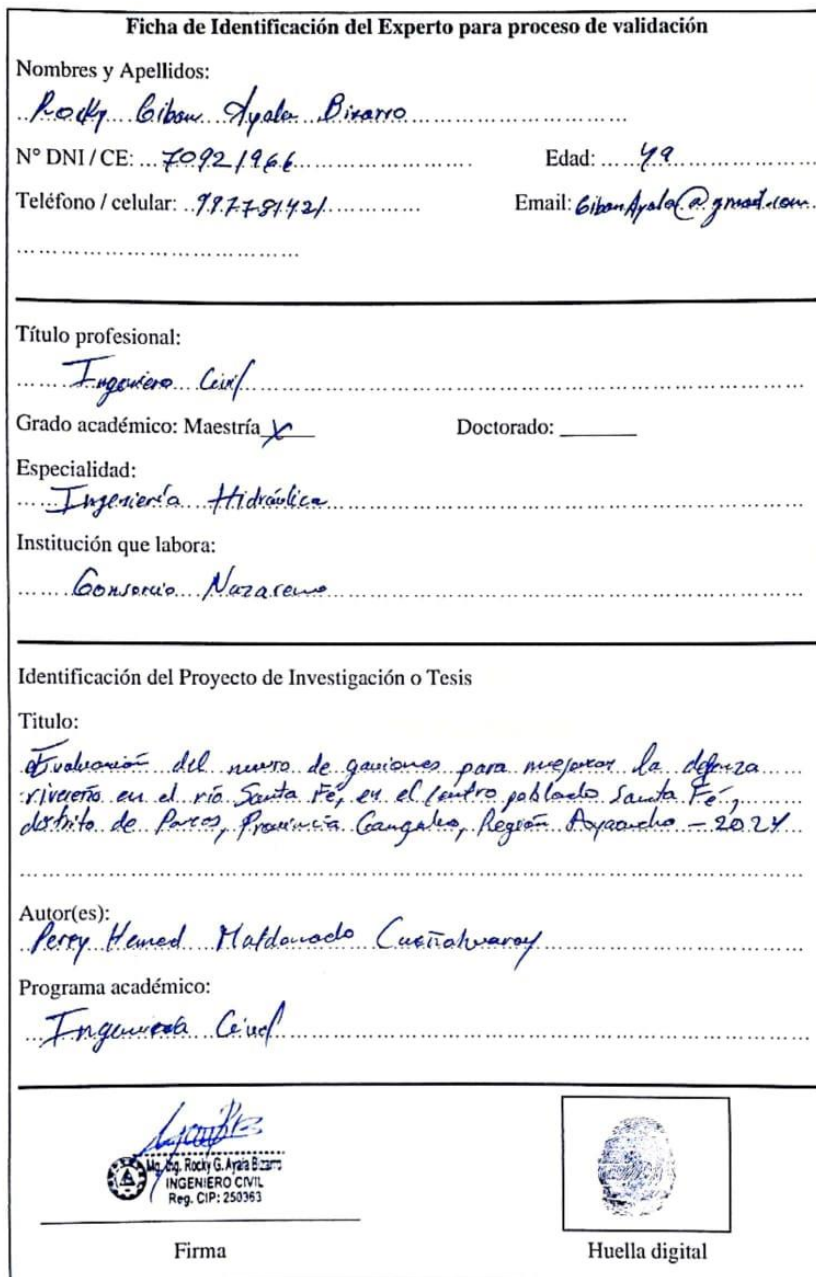 Ficha de Identificación del Experto para proceso de validación
Nombres y Apellidos:
Rocky Giban Ayala Bizarro
N° DNI / CE: 70921966 Edad: 49
Teléfono / celular: 997781421 Email: GibanAyala@gmail.com
Título profesional:
Ingeniero Civil
Grado académico: Maestría X Doctorado:
Especialidad:
Ingeniería Hidráulica
Institución que labora:
Consorcio Nazareno
Identificación del Proyecto de Investigación o Tesis
Titulo:
Evaluación del muro de gaviones para mejorar la defenza
rivereño en el río Santa Fé, en el centro poblado Santa Fé,
distrito de Paras, Provincia Cangallo, Región Ayacucho - 2024
Autor(es):
Percy Hamed Maldonado
Programa académico:
Ingeniería Civil
Mg. Ing. Rocky G. Ayala Bizarro
INGENIERO CIVIL
Reg. CIP: 250363
Firma Huella digital